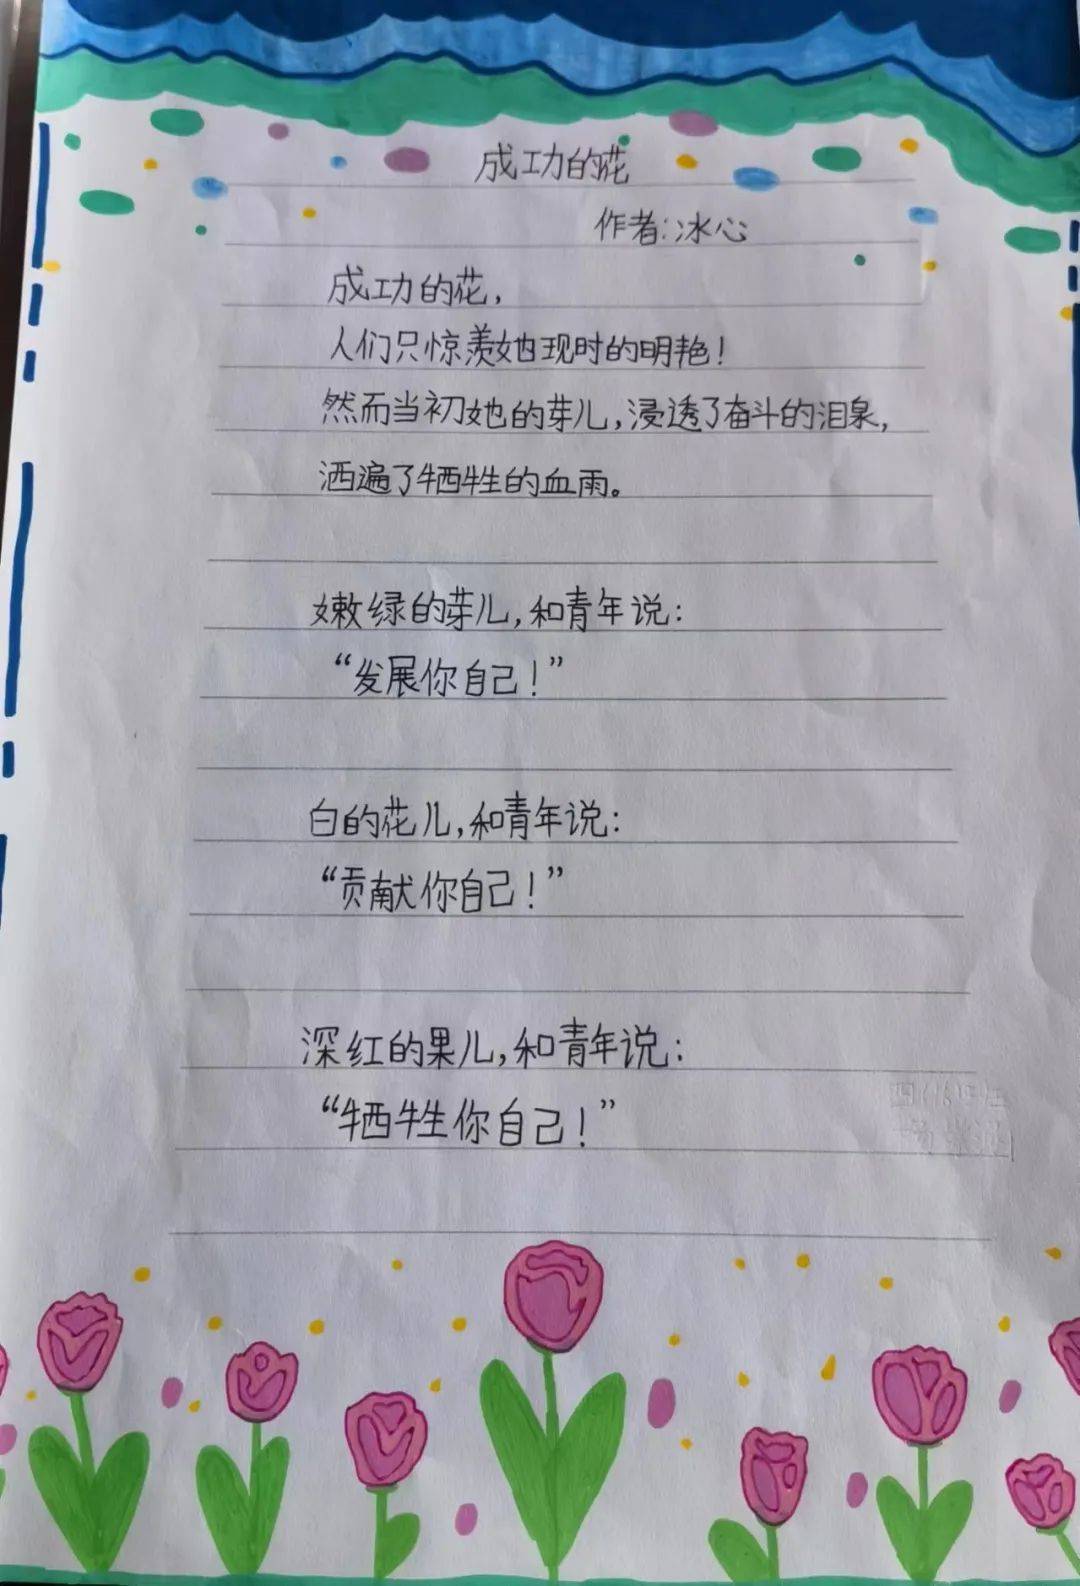 成功的花
作者:冰心
成功的花，
人们只惊羡她现时的明艳！
然而当初她的芽儿，浸透了奋斗的泪泉，
洒遍了牺牲的血雨。
嫩绿的芽儿，和青年说：
“发展你自己！”
白的花儿，和青年说：
“贡献你自己！”
深红的果儿，和青年说：
“牺牲你自己！”